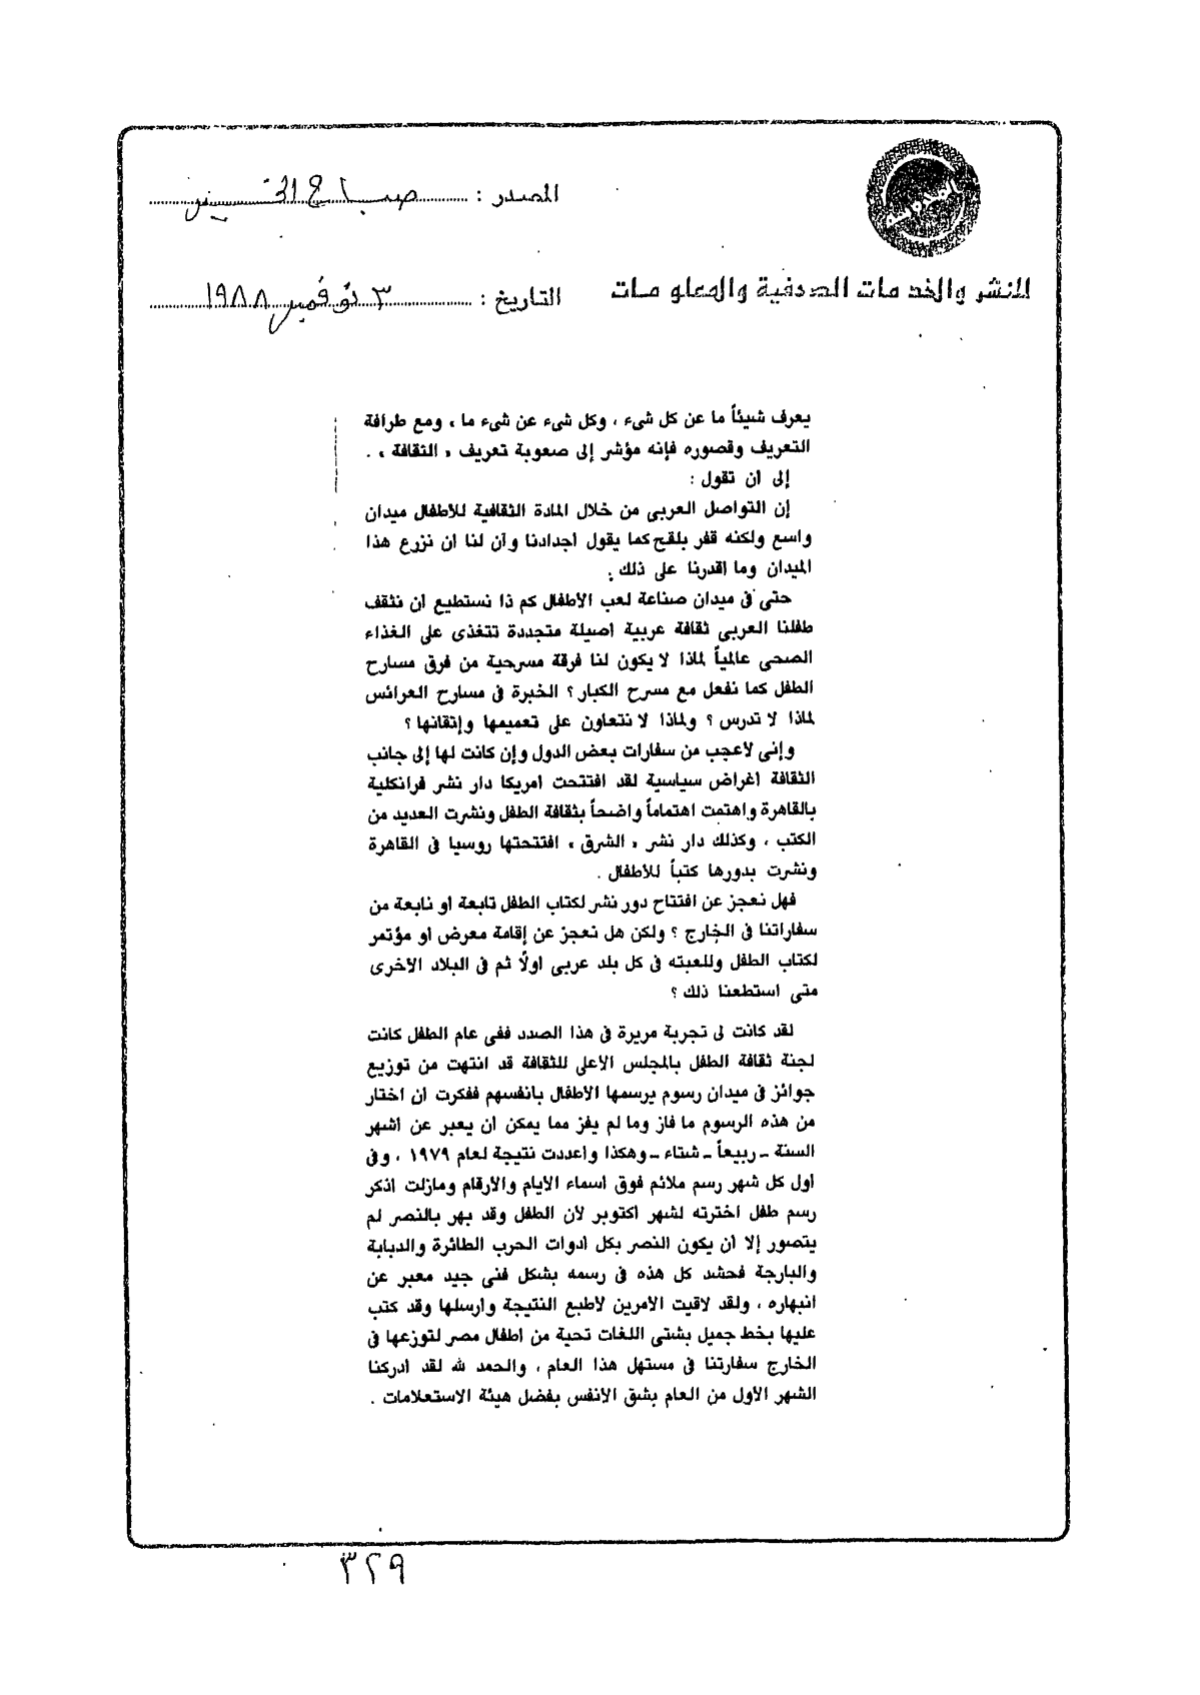 المصدر : صباح الخير
للنشر والخدمات الصحفية والمعلومات
التاريخ : ٣ نوفمبر ١٩٨٨
يعرف شيئاً ما عن كل شىء ، وكل شىء عن شىء ما ، ومع طرافة
التعريف وقصوره فإنه مؤشر إلى صعوبة تعريف « الثقافة » .
إلى أن تقول :
إن التواصل العربى من خلال المادة الثقافية للأطفال ميدان
واسع ولكنه قفر بلقح كما يقول أجدادنا وآن لنا أن نزرع هذا
الميدان وما أقدرنا على ذلك .
حتى فى ميدان صناعة لعب الأطفال كم ذا نستطيع أن نثقف
طفلنا العربى ثقافة عربية أصيلة متجددة تتغذى على الغذاء
الصحى عالمياً لماذا لا يكون لنا فرقة مسرحية من فرق مسارح
الطفل كما نفعل مع مسرح الكبار ؟ الخبرة فى مسارح العرائس
لماذا لا تدرس ؟ ولماذا لا نتعاون على تعميمها وإتقانها ؟
وإنى لأعجب من سفارات بعض الدول وإن كانت لها إلى جانب
الثقافة أغراض سياسية لقد افتتحت أمريكا دار نشر فرانكلية
بالقاهرة واهتمت اهتماماً واضحاً بثقافة الطفل ونشرت العديد من
الكتب ، وكذلك دار نشر « الشرق » افتتحتها روسيا فى القاهرة
ونشرت بدورها كتباً للأطفال .
فهل نعجز عن افتتاح دور نشر لكتاب الطفل تابعة أو نابعة من
سفاراتنا فى الخارج ؟ ولكن هل نعجز عن إقامة معرض أو مؤتمر
لكتاب الطفل وللعبته فى كل بلد عربى أولًا ثم فى البلاد الأخرى
متى استطعنا ذلك ؟
لقد كانت لى تجربة مريرة فى هذا الصدد ففى عام الطفل كانت
لجنة ثقافة الطفل بالمجلس الأعلى للثقافة قد انتهت من توزيع
جوائز فى ميدان رسوم يرسمها الأطفال بأنفسهم ففكرت أن أختار
من هذه الرسوم ما فاز وما لم يفز مما يمكن أن يعبر عن أشهر
السنة ـ ربيعاً ـ شتاء ـ وهكذا وأعددت نتيجة لعام ١٩٧٩ ، وفى
أول كل شهر رسم ملائم فوق أسماء الأيام والأرقام ومازلت أذكر
رسم طفل اخترته لشهر أكتوبر لأن الطفل وقد بهر بالنصر لم
يتصور إلا أن يكون النصر بكل أدوات الحرب الطائرة والدبابة
والبارجة فحشد كل هذه فى رسمه بشكل فنى جيد معبر عن
انبهاره ، ولقد لاقيت الأمرين لأطبع النتيجة وأرسلها وقد كتب
عليها بخط جميل بشتى اللغات تحية من أطفال مصر لتوزعها فى
الخارج سفارتنا فى مستهل هذا العام ، والحمد لله لقد أدركنا
الشهر الأول من العام بشق الأنفس بفضل هيئة الاستعلامات .
٣٢٩